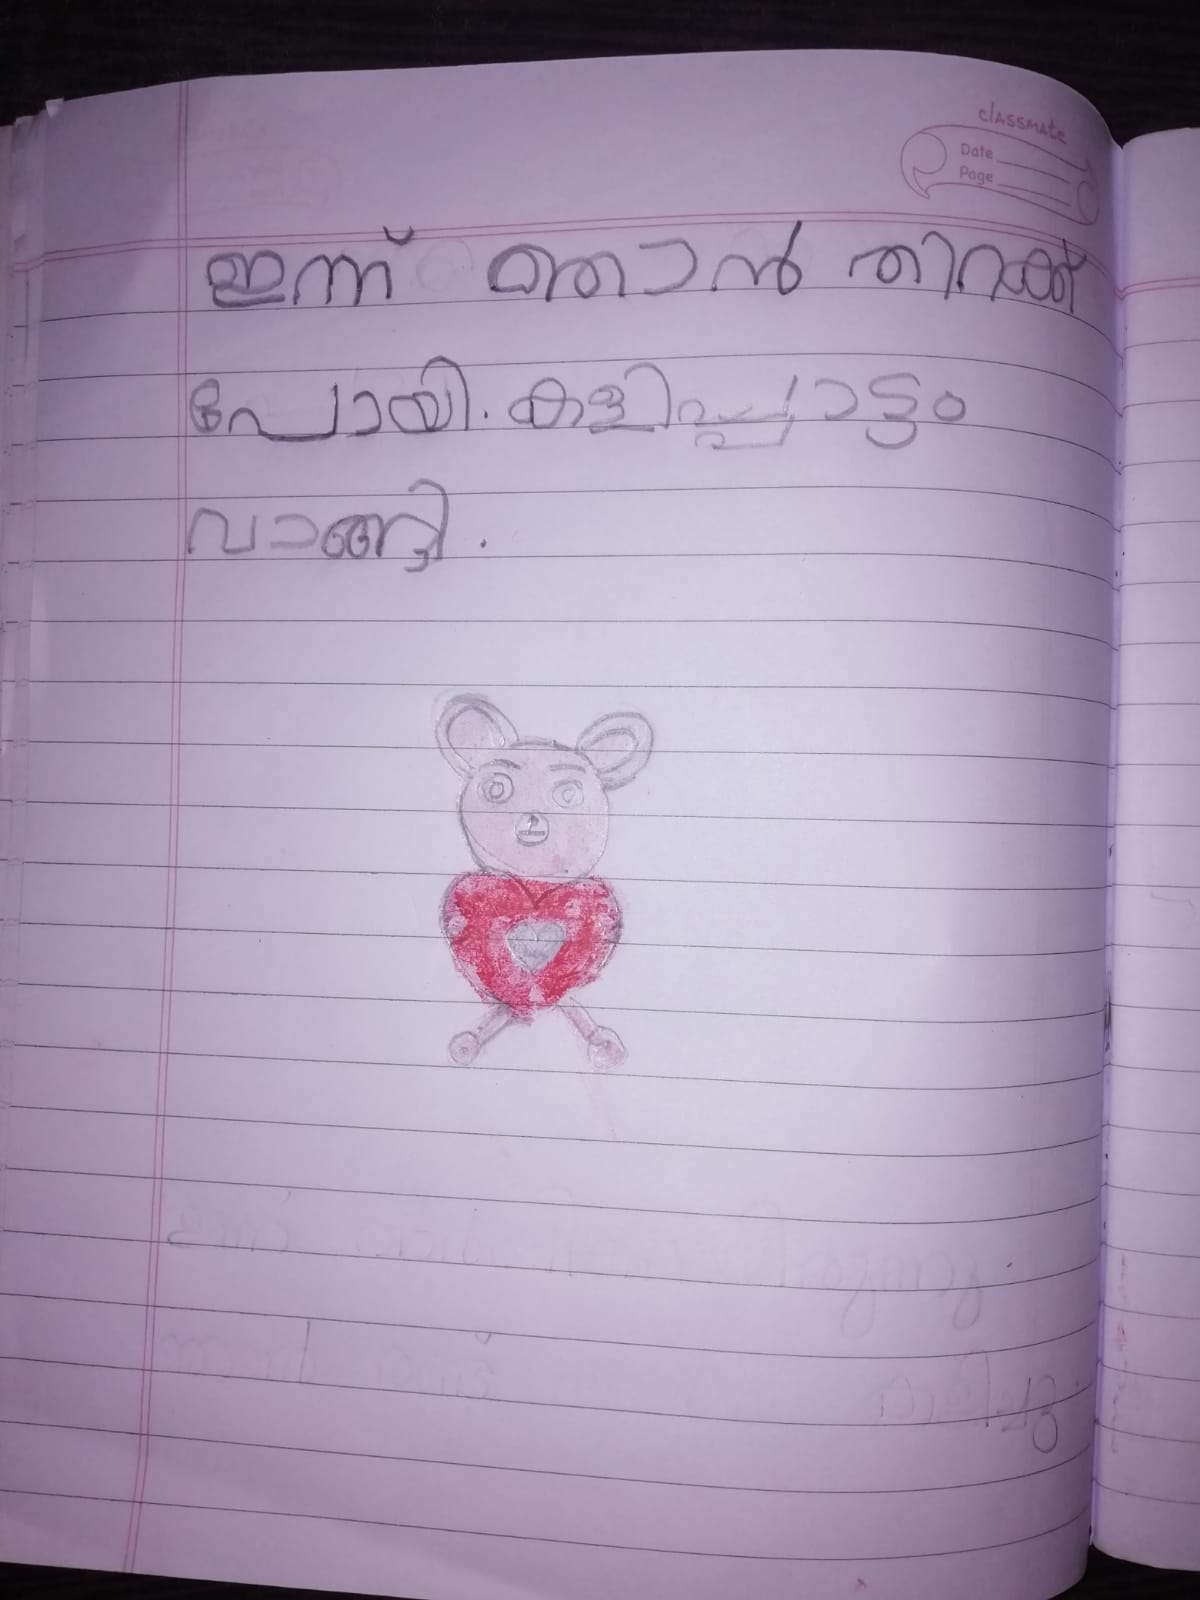 classmate
Date
Page
ഇന്ന് ഞാൻ തിറക്ക്
പോയി. കളിപ്പാട്ടം
വാങ്ങി.